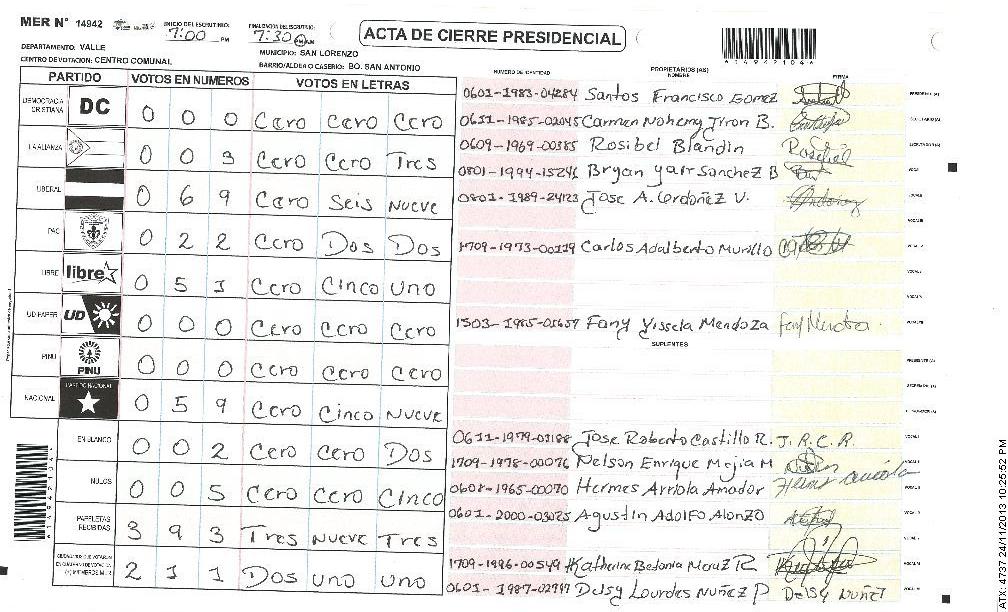 MER N° 14942
INICIO DEL ESCRUTINIO: 7:00 PM
FINALIZACION DEL ESCRUTINIO: 7:30 PM AM
ACTA DE CIERRE PRESIDENCIAL
DEPARTAMENTO: VALLE
MUNICIPIO: SAN LORENZO
CENTRO DE VOTACION: CENTRO COMUNAL
BARRIO/ALDEA O CASERIO: BO. SAN ANTONIO
PARTIDO VOTOS EN NUMEROS VOTOS EN LETRAS
DEMOCRACIA CRISTIANA DC 0 0 0 Cero Cero Cero
LA ALIANZA 0 0 3 Cero Cero Tres
LIBERAL 0 6 9 Cero Seis Nueve
PAC 0 2 2 Cero Dos Dos
LIBRE libre 0 5 1 Cero Cinco Uno
UD FAPER UD 0 0 0 Cero Cero Cero
PINU PINU 0 0 0 Cero Cero Cero
NACIONAL PARTIDO NACIONAL 0 5 9 Cero Cinco Nueve
EN BLANCO 0 0 2 Cero Cero Dos
NULOS 0 0 5 Cero Cero Cinco
PAPELETAS RECIBIDAS 3 9 3 Tres Nueve Tres
2 1 1 Dos uno uno
NUMERO DE IDENTIDAD
PROPIETARIOS (AS)
NOMBRE
FIRMA
0601-1983-04284 Santos Francisco Gomez
0611-1985-02045 Carmen Nohemy Jiron B.
0609-1969-00385 Rosibel Blandin
0801-1994-15246 Bryan Yair Sanchez B
0801-1989-24123 Jose A. Ordoñez V.
1709-1973-00119 Carlos Adalberto Murillo
1503-1985-01657 Fany Yissela Mendoza Fany Mendoza
SUPLENTES
0611-1979-01188 Jose Roberto Castillo R. J.R.C.R.
1709-1978-00076 Nelson Enrique Mejia M
0608-1965-00070 Hermes Arriola Amador
0601-2000-03025 Agustin Adolfo Alonzo
1709-1996-00549 Katherine Betania Meraz R
0601-1987-02947 Delsy Lourdes Nuñez P Delsy Nuñez
CATX 4737 24/11/2013 10:25:52 PM